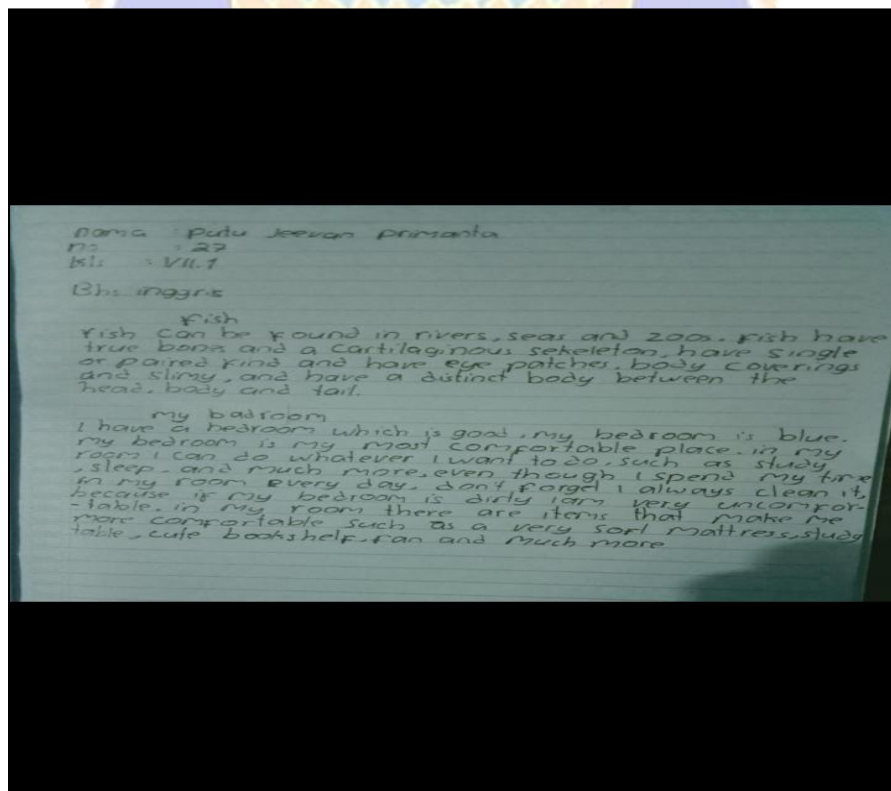 nama : putu Jeevan primanta
no : 27
kls : VII.1
Bhs inggris
Fish
Fish can be found in rivers, seas and zoos. Fish have
true bones and a cartilaginous sekeleton, have single
or paired find and have eye patches. body coverings
and slimy, and have a distinct body between the
head, body and tail.
my badroom
I have a bedroom which is good, my bedroom is blue.
my bedroom is my most comfortable place. in my
room I can do whatever I want to do, such as study
, sleep. and much more. even though I spend my time
in my room every day, don't forget I always clean it,
because if my bedroom is dirty I am very uncomfor-
-table. in my room there are items that make me
more comfortable such as a very soft mattress, study
table, cute bookshelf, fan and much more